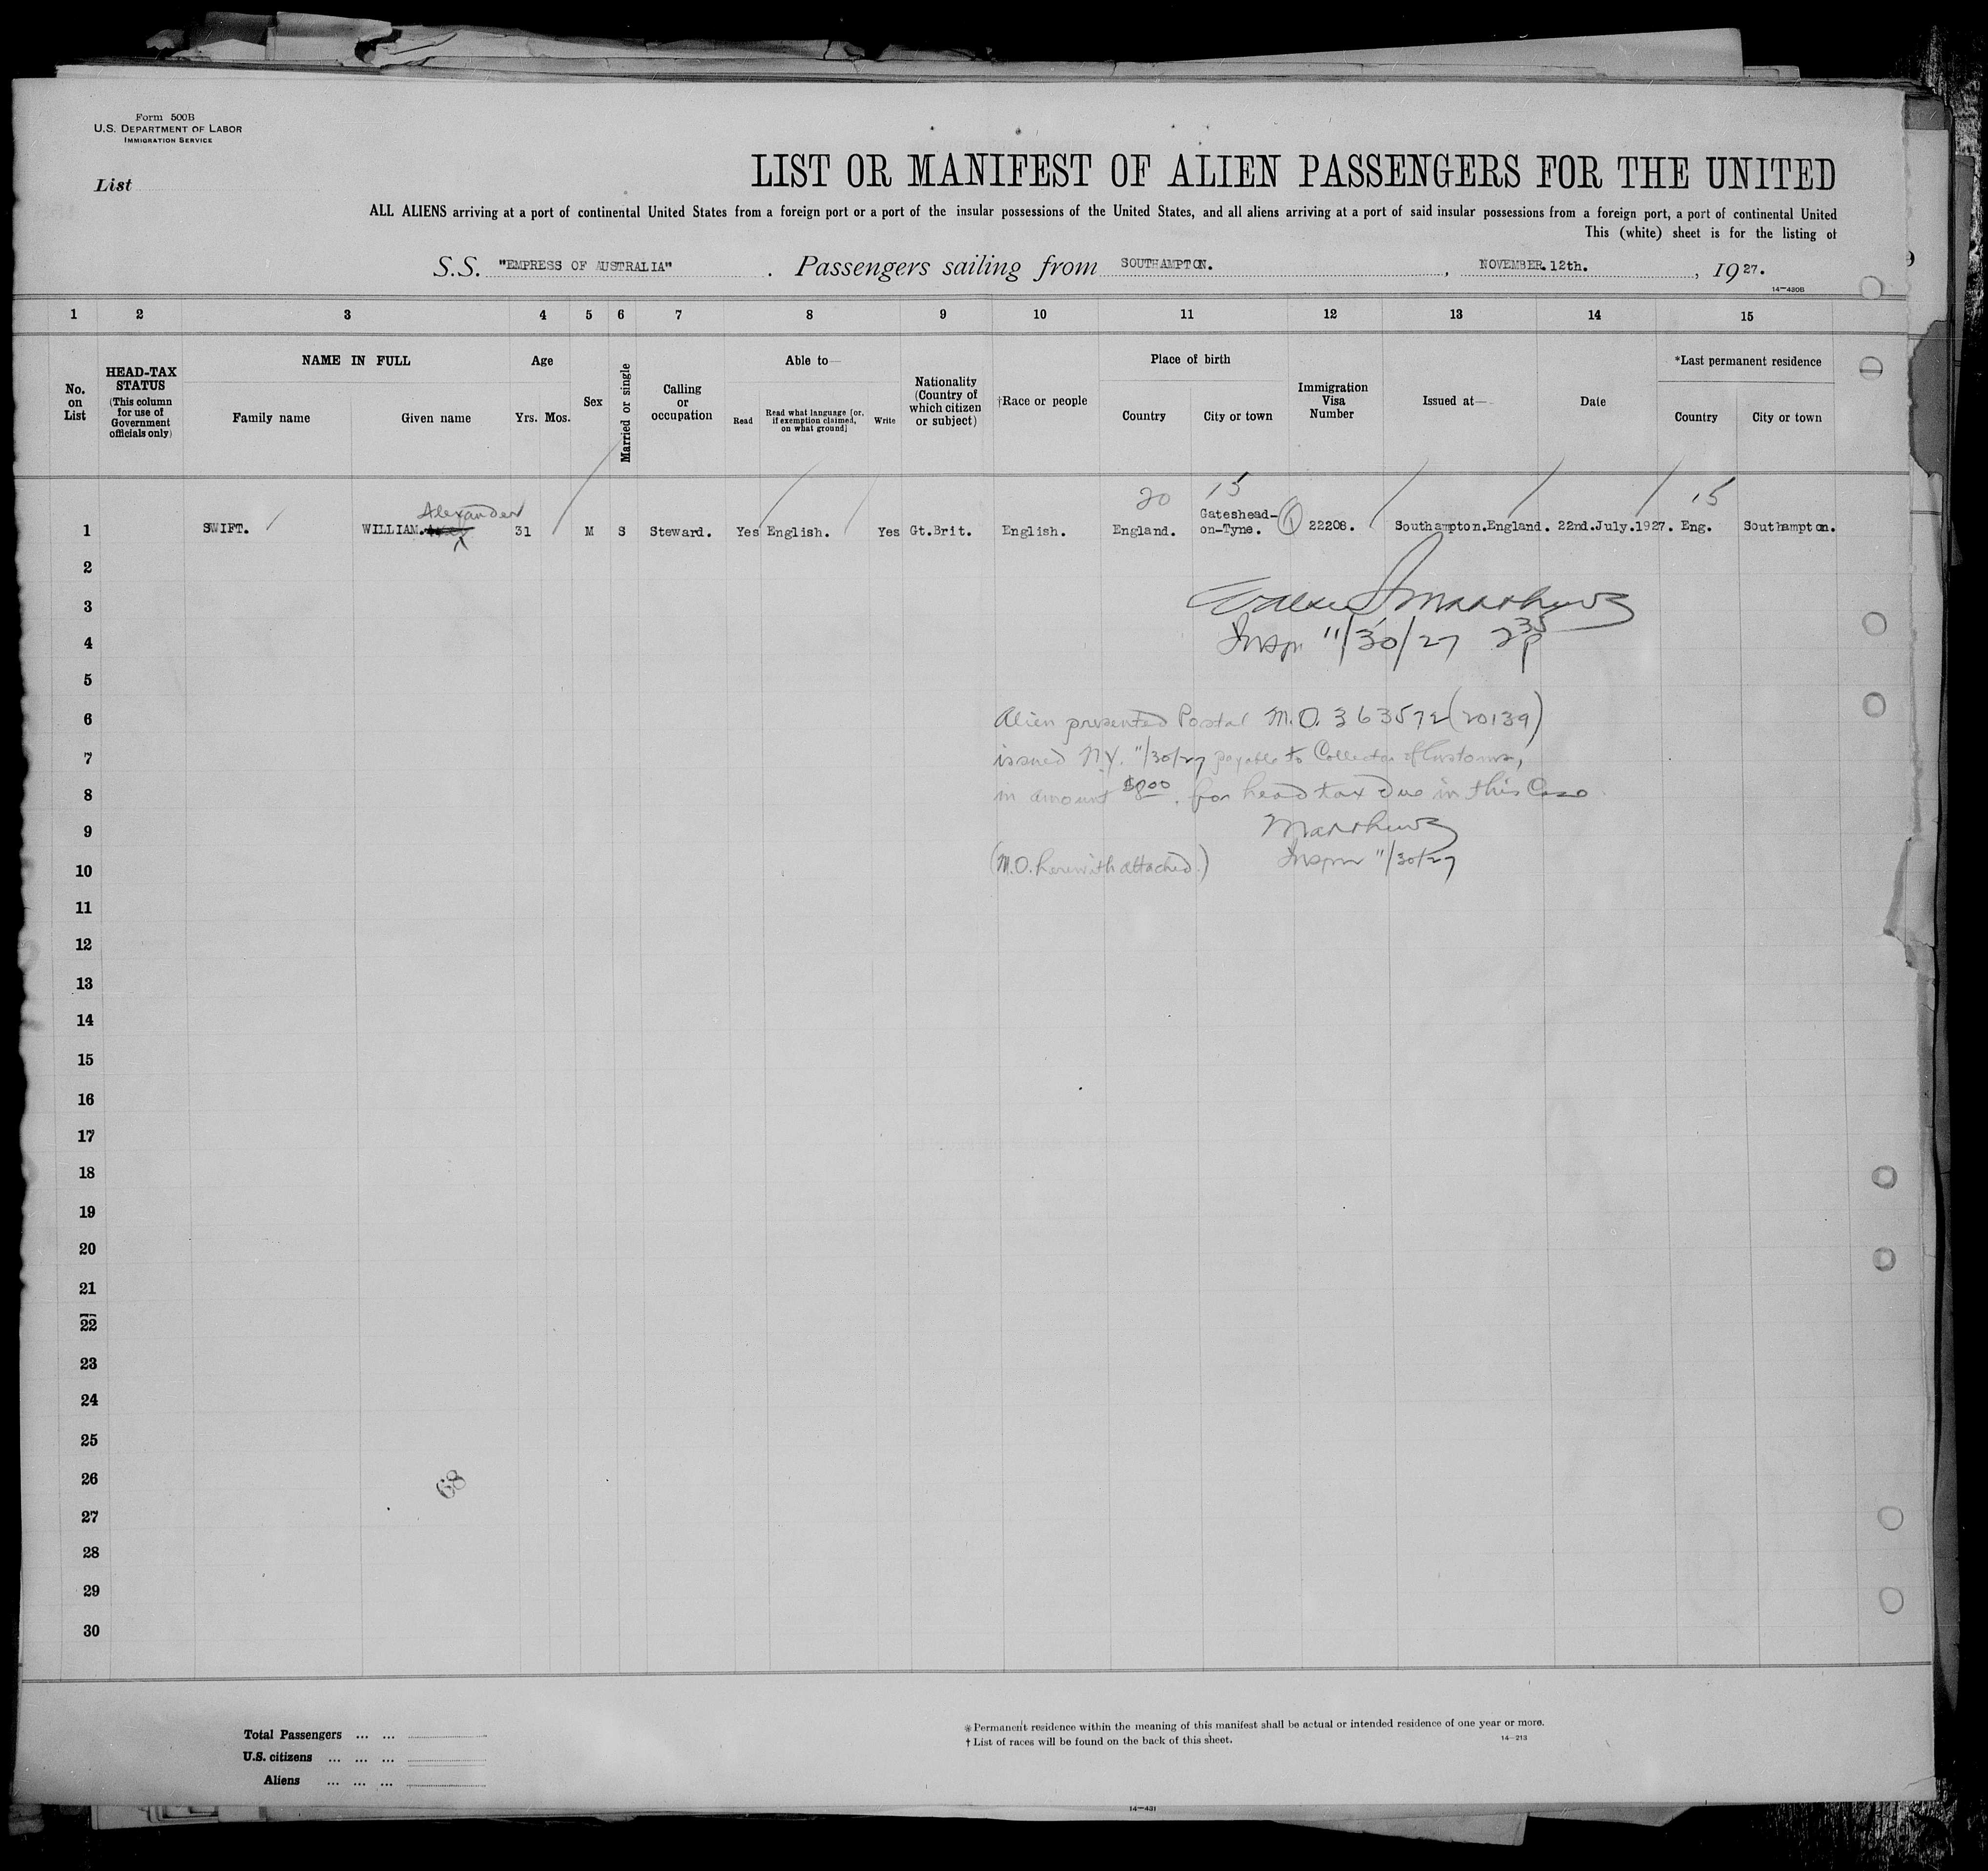 Form 500B
U.S. DEPARTMENT OF LABOR
IMMIGRATION SERVICE
List
LIST OR MANIFEST OF ALIEN PASSENGERS FOR THE UNITED
ALL ALIENS arriving at a port of continental United States from a foreign port or a port of the insular possessions of the United States, and all aliens arriving at a port of said insular possessions from a foreign port, a port of continental United
This (white) sheet is for the listing of
S.S. "EMPRESS OF AUSTRALIA" . Passengers sailing from SOUTHAMPTON. , NOVEMBER.12th. , 1927.
14—420B
1 2 3 4 5 6 7 8 9 10 11 12 13 14 15
No. on List
HEAD-TAX STATUS (This column for use of Government officials only)
NAME IN FULL
Family name
Given name
Age
Yrs. Mos.
Sex
Married or single
Calling or occupation
Able to—
Read
Read what language [or, if exemption claimed, on what ground]
Write
Nationality (Country of which citizen or subject)
†Race or people
Place of birth
Country
City or town
Immigration Visa Number
Issued at—
Date
*Last permanent residence
Country
City or town
20 15 15
Alexander
1 SWIFT. WILLIAM. 31 M S Steward. Yes English. Yes Gt.Brit. English. England. Gateshead-on-Tyne. 22208. Southampton.England. 22nd.July.1927. Eng. Southampton.
2
3 Matthews
4 Inspr 11/30/27 2 35 p
5
6 Alien presented Postal M.O. 363572 (20139)
7 issued N.Y. 11/30/27 payable to Collector of Customs,
8 in amount $8.00, for head tax due in this Case.
9 Matthews
10 (M.O. herewith attached.) Inspr 11/30/27
11
12
13
14
15
16
17
18
19
20
21
22
23
24
25
26
68
27
28
29
30
Total Passengers ... ...
U.S. citizens ... ... ...
Aliens ... ... ...
* Permanent residence within the meaning of this manifest shall be actual or intended residence of one year or more.
† List of races will be found on the back of this sheet.
14—213
14—431